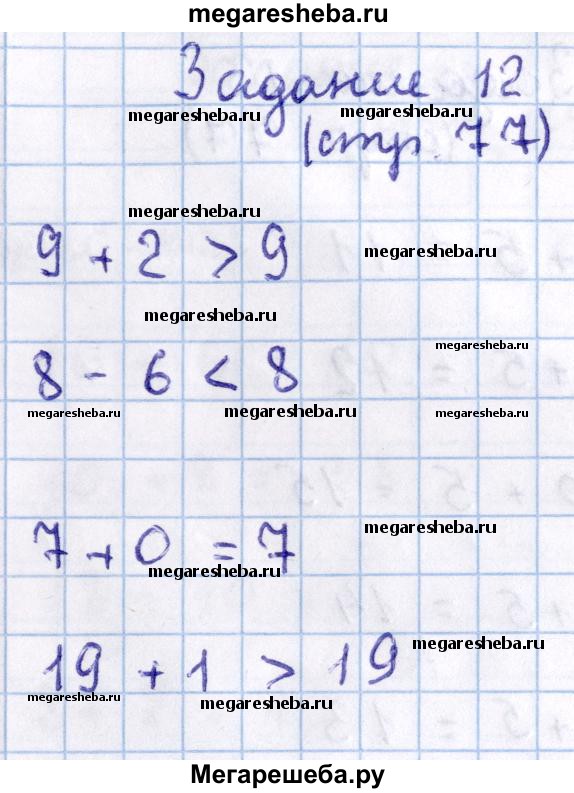 megaresheba.ru
Задание 12
megaresheba.ru megaresheba.ru
(стр. 77)
megaresheba.ru
9 + 2 > 9 megaresheba.ru
megaresheba.ru
megaresheba.ru
8 - 6 < 8
megaresheba.ru megaresheba.ru megaresheba.ru
megaresheba.ru
7 + 0 = 7
megaresheba.ru
megaresheba.ru
19 + 1 > 19
megaresheba.ru megaresheba.ru
Мегарешеба.ру